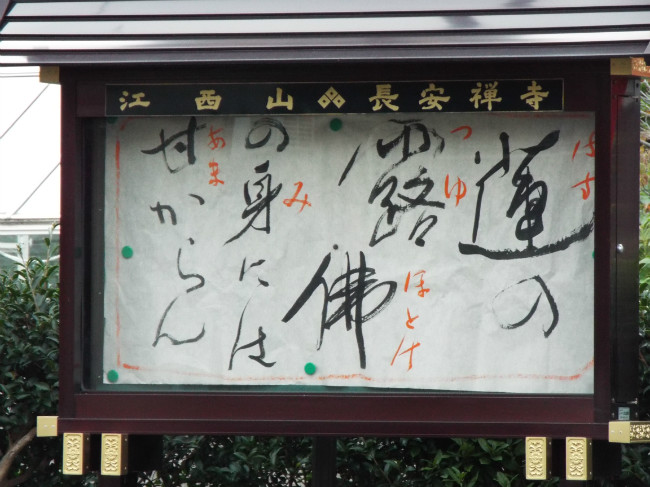 江西山 長安禅寺
蓮の
はす
露
つゆ
佛
ほとけ
の身には
み
甘からん
あま